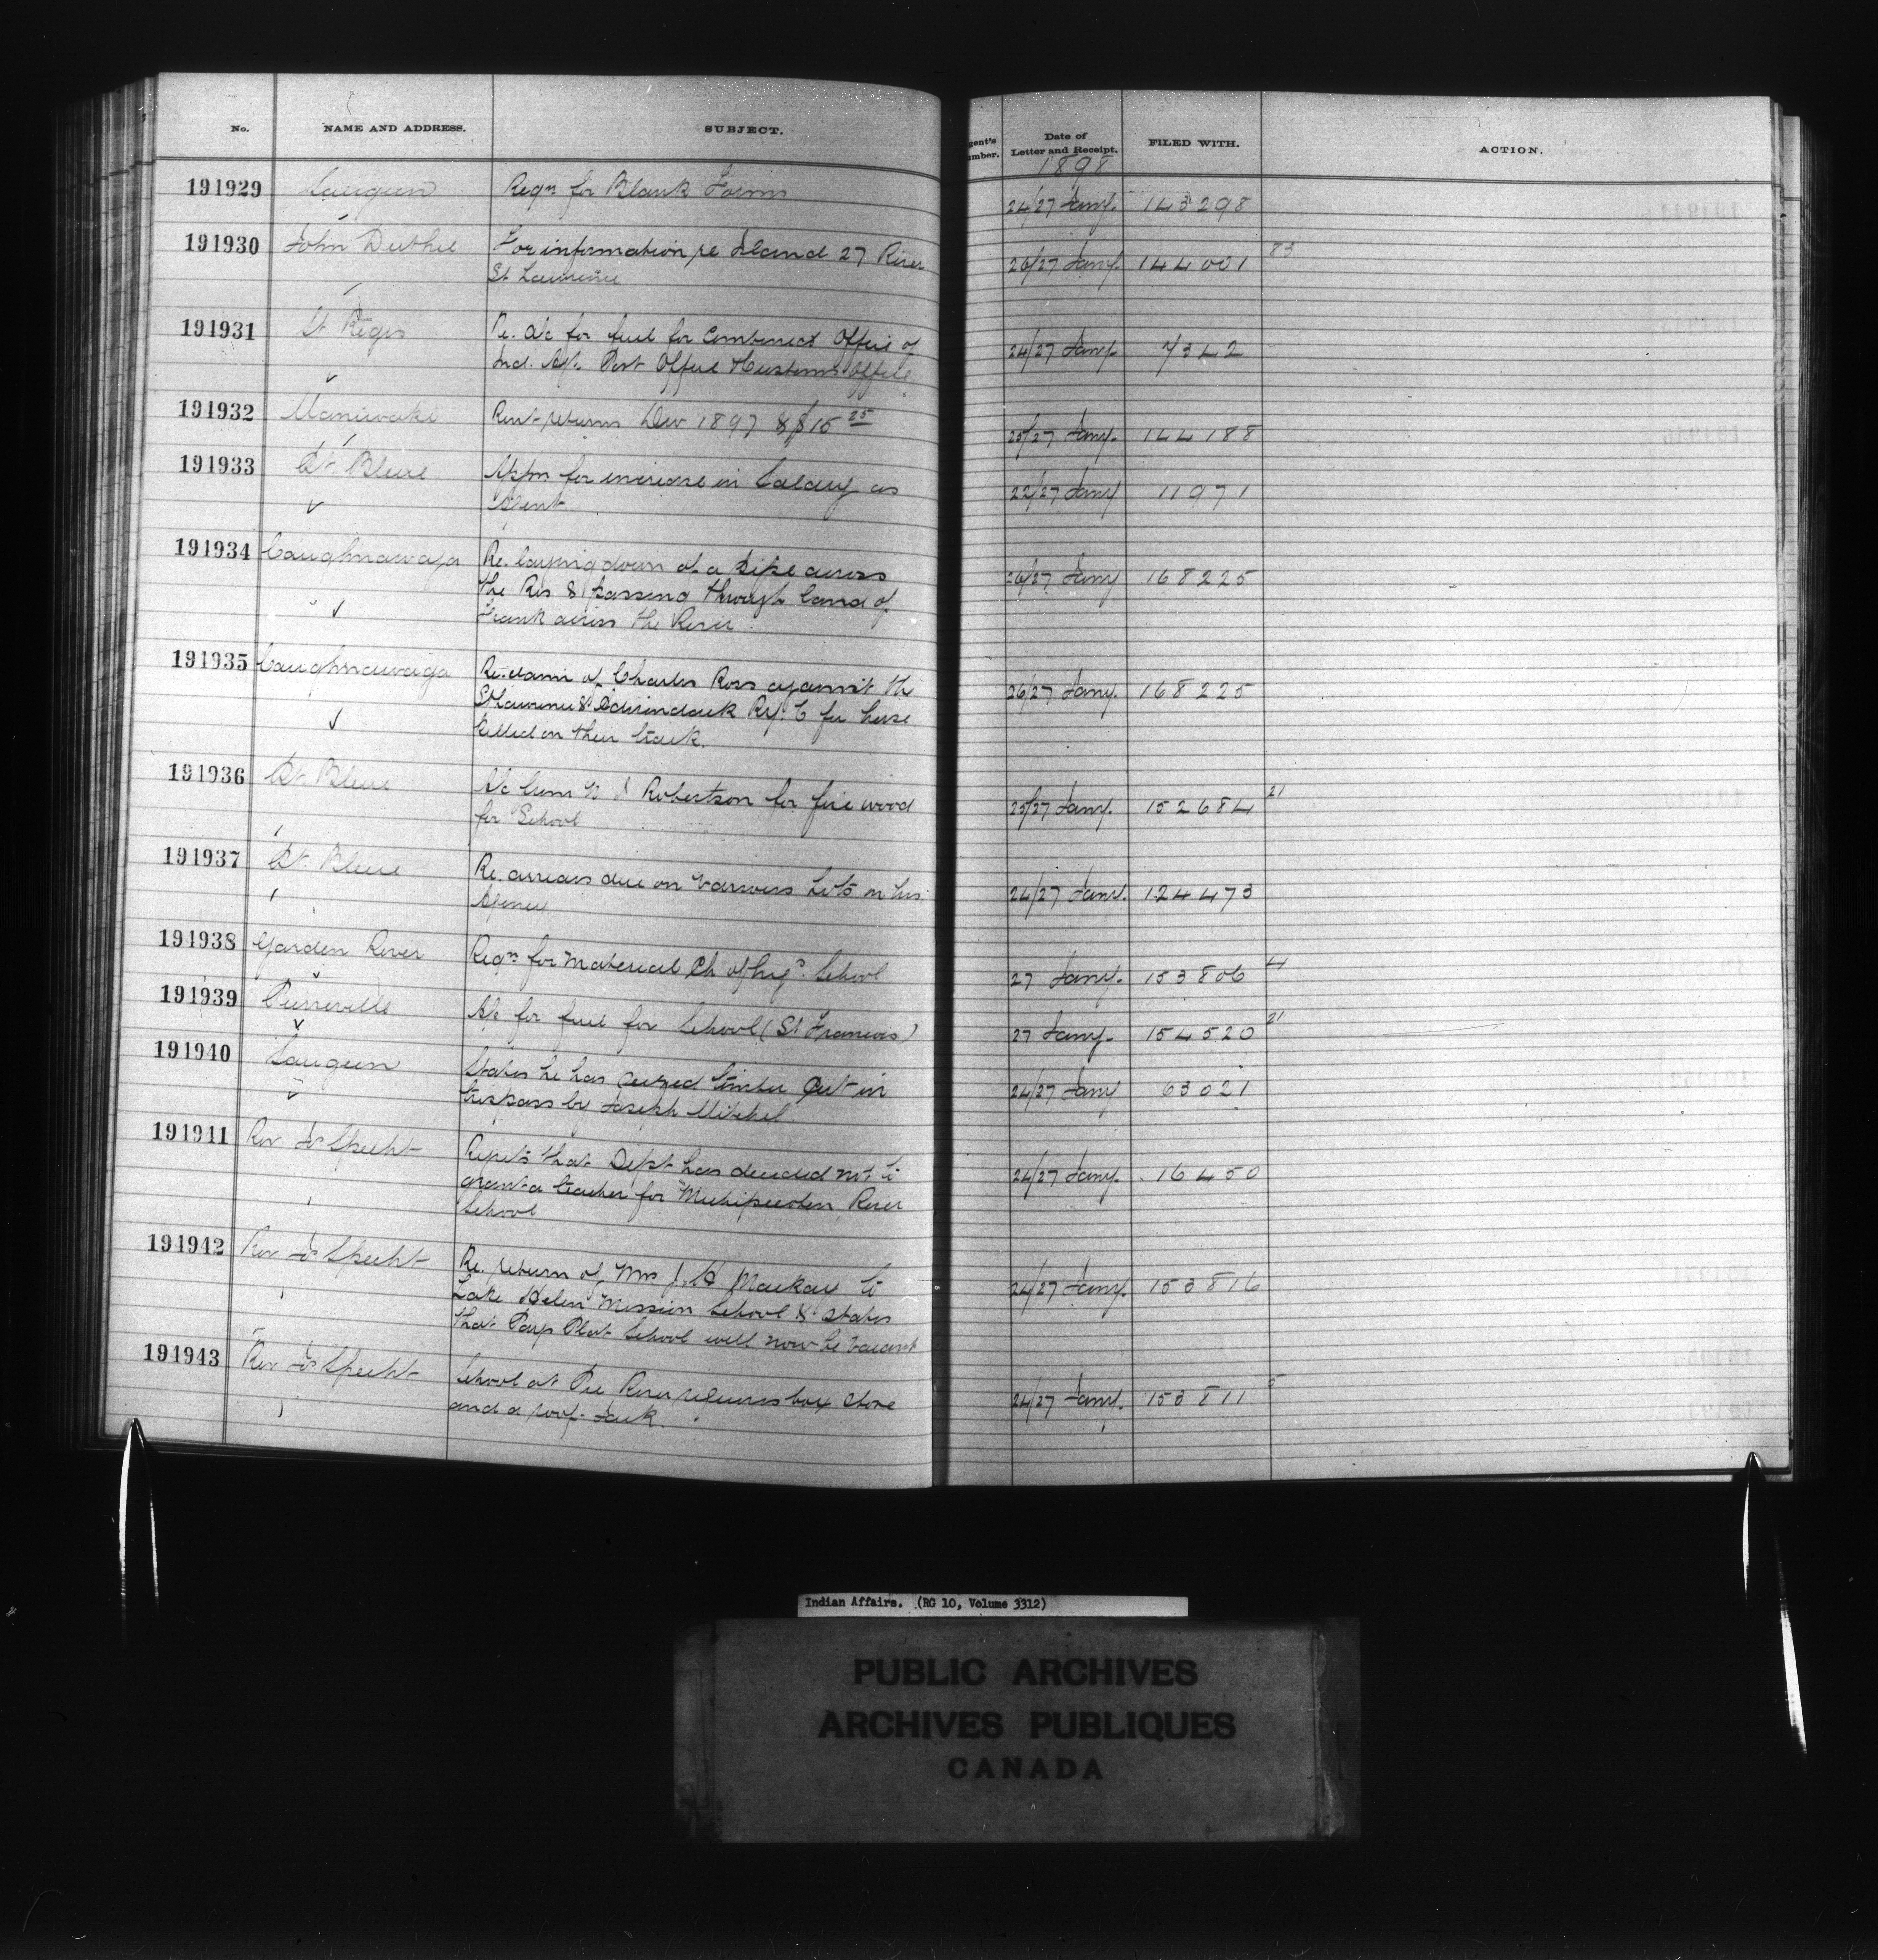 No. NAME AND ADDRESS. SUBJECT. gent's umber. Date of Letter and Receipt. FILED WITH. ACTION.
1898
191929 Saugeen Reqn for Blank Forms 24/27 Jany. 143298
191930 John Duthie For information re Island 27 River 26/27 Jany. 144001 83
St. Lawrence
191931 St Regis Re. a/c for fuel for Combined Office of 24/27 Jany. 7342
Ind. Agt. Post Office & Customs Office
191932 Maniwaki Rent returns Dec 1897 & $15 25 25/27 Jany. 144188
191933 Pt. Bleue Appn for increase in Salary as 22/27 Jany 11971
Agent
191934 Caughnawaga Re. laying down of a pipe across 26/27 Jany 168225
the Res & passing through land of
Frank across the River.
191935 Caughnawaga Re. claim of Charles Ross against the 26/27 Jany. 168225
St Lawrence & Adirondack Ry. C for horse
killed on their track.
191936 Pt. Bleue A/c from Robertson for fire wood 25/27 Jany. 152684 21
for School
191937 Pt. Bleue Re. arrears due on various Lots in his 24/27 Jany. 124473
Agency
191938 Garden River Reqn for material Ch of Eng. School 27 Jany. 153806 4
191939 Pierreville A/c for fuel for School (St Francois) 27 Jany. 154520 21
191940 Saugeen States he has seized timber cut in 24/27 Jany 63021
trespass by Joseph Mitchel.
191941 Rev Js Specht Regrets that Dept has decided not to 24/27 Jany. 16450
grant a teacher for Michipicoten River
School
191942 Rev Js Specht Re. return of Mrs J. H Mackay to 24/27 Jany. 153816
Lake Helen Mission School & states
that Pays Plat School will now be vacant
191943 Rev Js Specht School at Pic River requires box stove 24/27 Jany. 153811 5
and a roof-jack.
Indian Affairs. (RG 10, Volume 3312)
PUBLIC ARCHIVES
ARCHIVES PUBLIQUES
CANADA